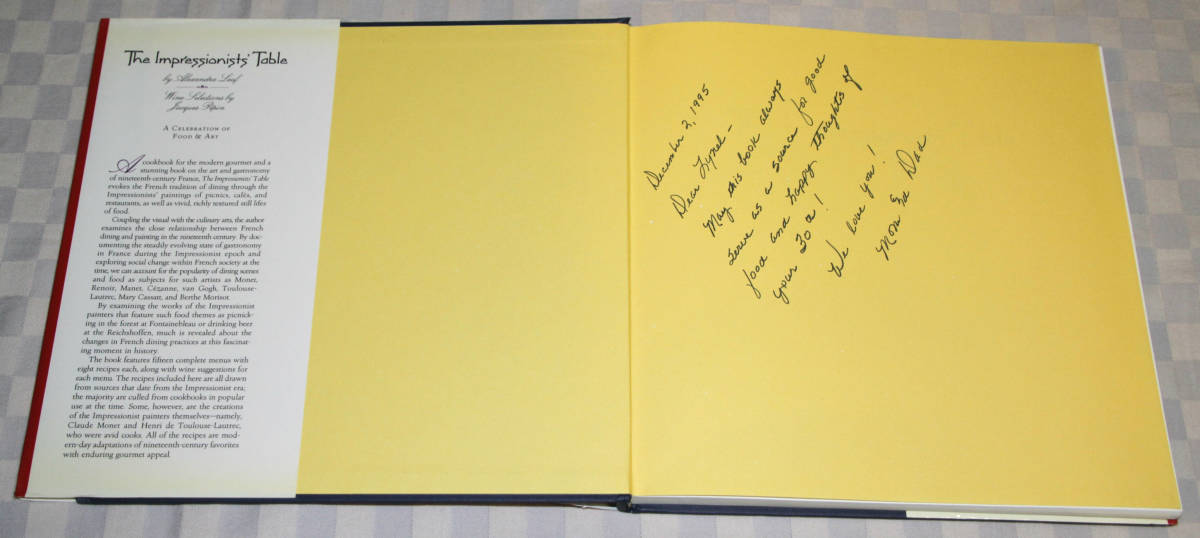 The Impressionists' Table
by Alexandra Leaf
Wine Selections by
Jacques Pépin
A CELEBRATION OF
FOOD & ART
A cookbook for the modern gourmet and a
stunning book on the art and gastronomy
of nineteenth-century France, The Impressionists' Table
evokes the French tradition of dining through the
Impressionists' paintings of picnics, cafés, and
restaurants, as well as vivid, richly textured still lifes
of food.
Coupling the visual with the culinary arts, the author
examines the close relationship between French
dining and painting in the nineteenth century. By doc-
umenting the steadily evolving state of gastronomy
in France during the Impressionist epoch and
exploring social change within French society at the
time, we can account for the popularity of dining scenes
and food as subjects for such artists as Monet,
Renoir, Manet, Cézanne, van Gogh, Toulouse-
Lautrec, Mary Cassatt, and Berthe Morisot.
By examining the works of the Impressionist
painters that feature such food themes as picnick-
ing in the forest at Fontainebleau or drinking beer
at the Reichshoffen, much is revealed about the
changes in French dining practices at this fascinat-
ing moment in history.
The book features fifteen complete menus with
eight recipes each, along with wine suggestions for
each menu. The recipes included here are all drawn
from sources that date from the Impressionist era;
the majority are culled from cookbooks in popular
use at the time. Some, however, are the creations
of the Impressionist painters themselves—namely,
Claude Monet and Henri de Toulouse-Lautrec,
who were avid cooks. All of the recipes are mod-
ern-day adaptations of nineteenth-century favorites
with enduring gourmet appeal.
December 2, 1995
Dear Lynel -
May this book always
serve as a source for good
food and happy thoughts of
your 30th!
We love you!
Mom and Dad